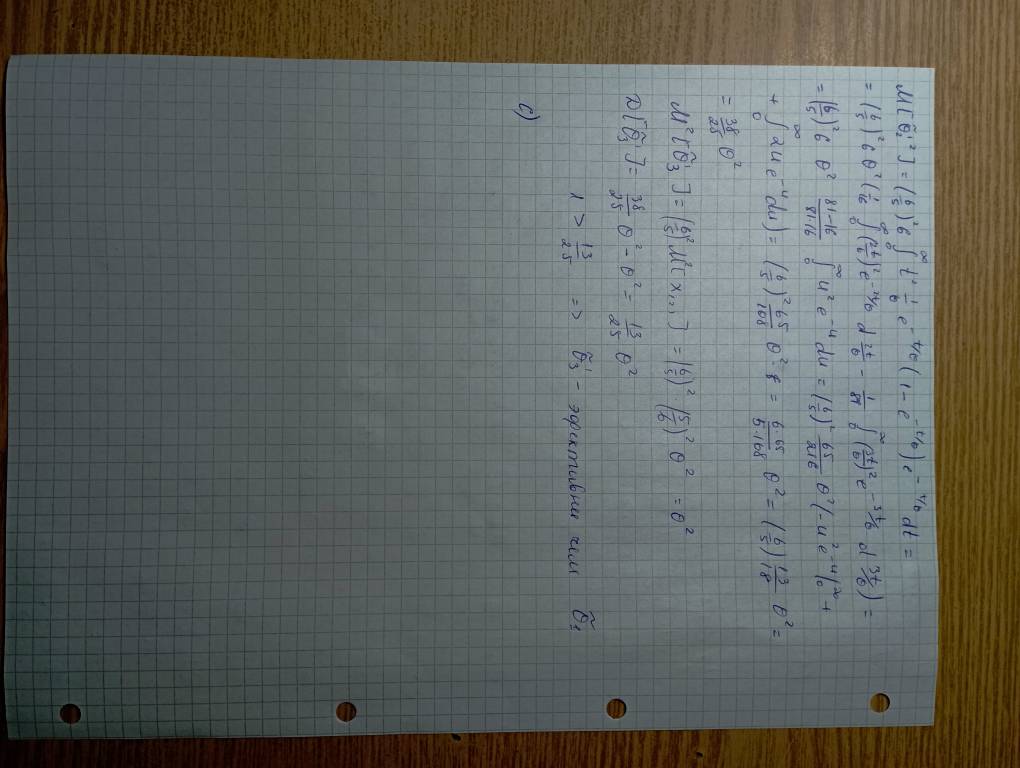 M[θ̃₃'²] = (6/5)² 6 ∫₀^∞ t² 1/θ e^(-t/θ) (1 - e^(-t/θ)) e^(-t/θ) dt =
= (6/5)² 6 θ² (1/16 ∫₀^∞ (2t/θ)² e^(-2t/θ) d 2t/θ - 1/81 ∫₀^∞ (3t/θ)² e^(-3t/θ) d 3t/θ) =
= (6/5)² 6 θ² (81-16)/(81·16) ∫₀^∞ u² e^(-u) du = (6/5)² 65/216 θ² (-u² e^(-u) |₀^∞ +
+ ∫₀^∞ 2u e^(-u) du) = (6/5)² 65/108 θ² · 1 = (6·65)/(5·108) θ² = (6/5) 13/18 θ² =
= 38/25 θ²
M²[θ̃₃'] = (6/5)² M²[x₍₂₎] = (6/5)² · (5/6)² θ² = θ²
D[θ̃₃'] = 38/25 θ² - θ² = 13/25 θ²
1 > 13/25 => θ̃₃' - эфективни чим θ̃₁
c)